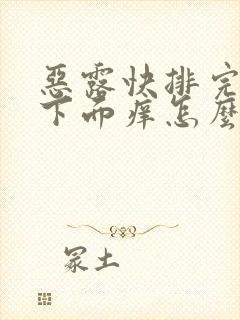 惡露快排完
下面痒怎麼
冢土